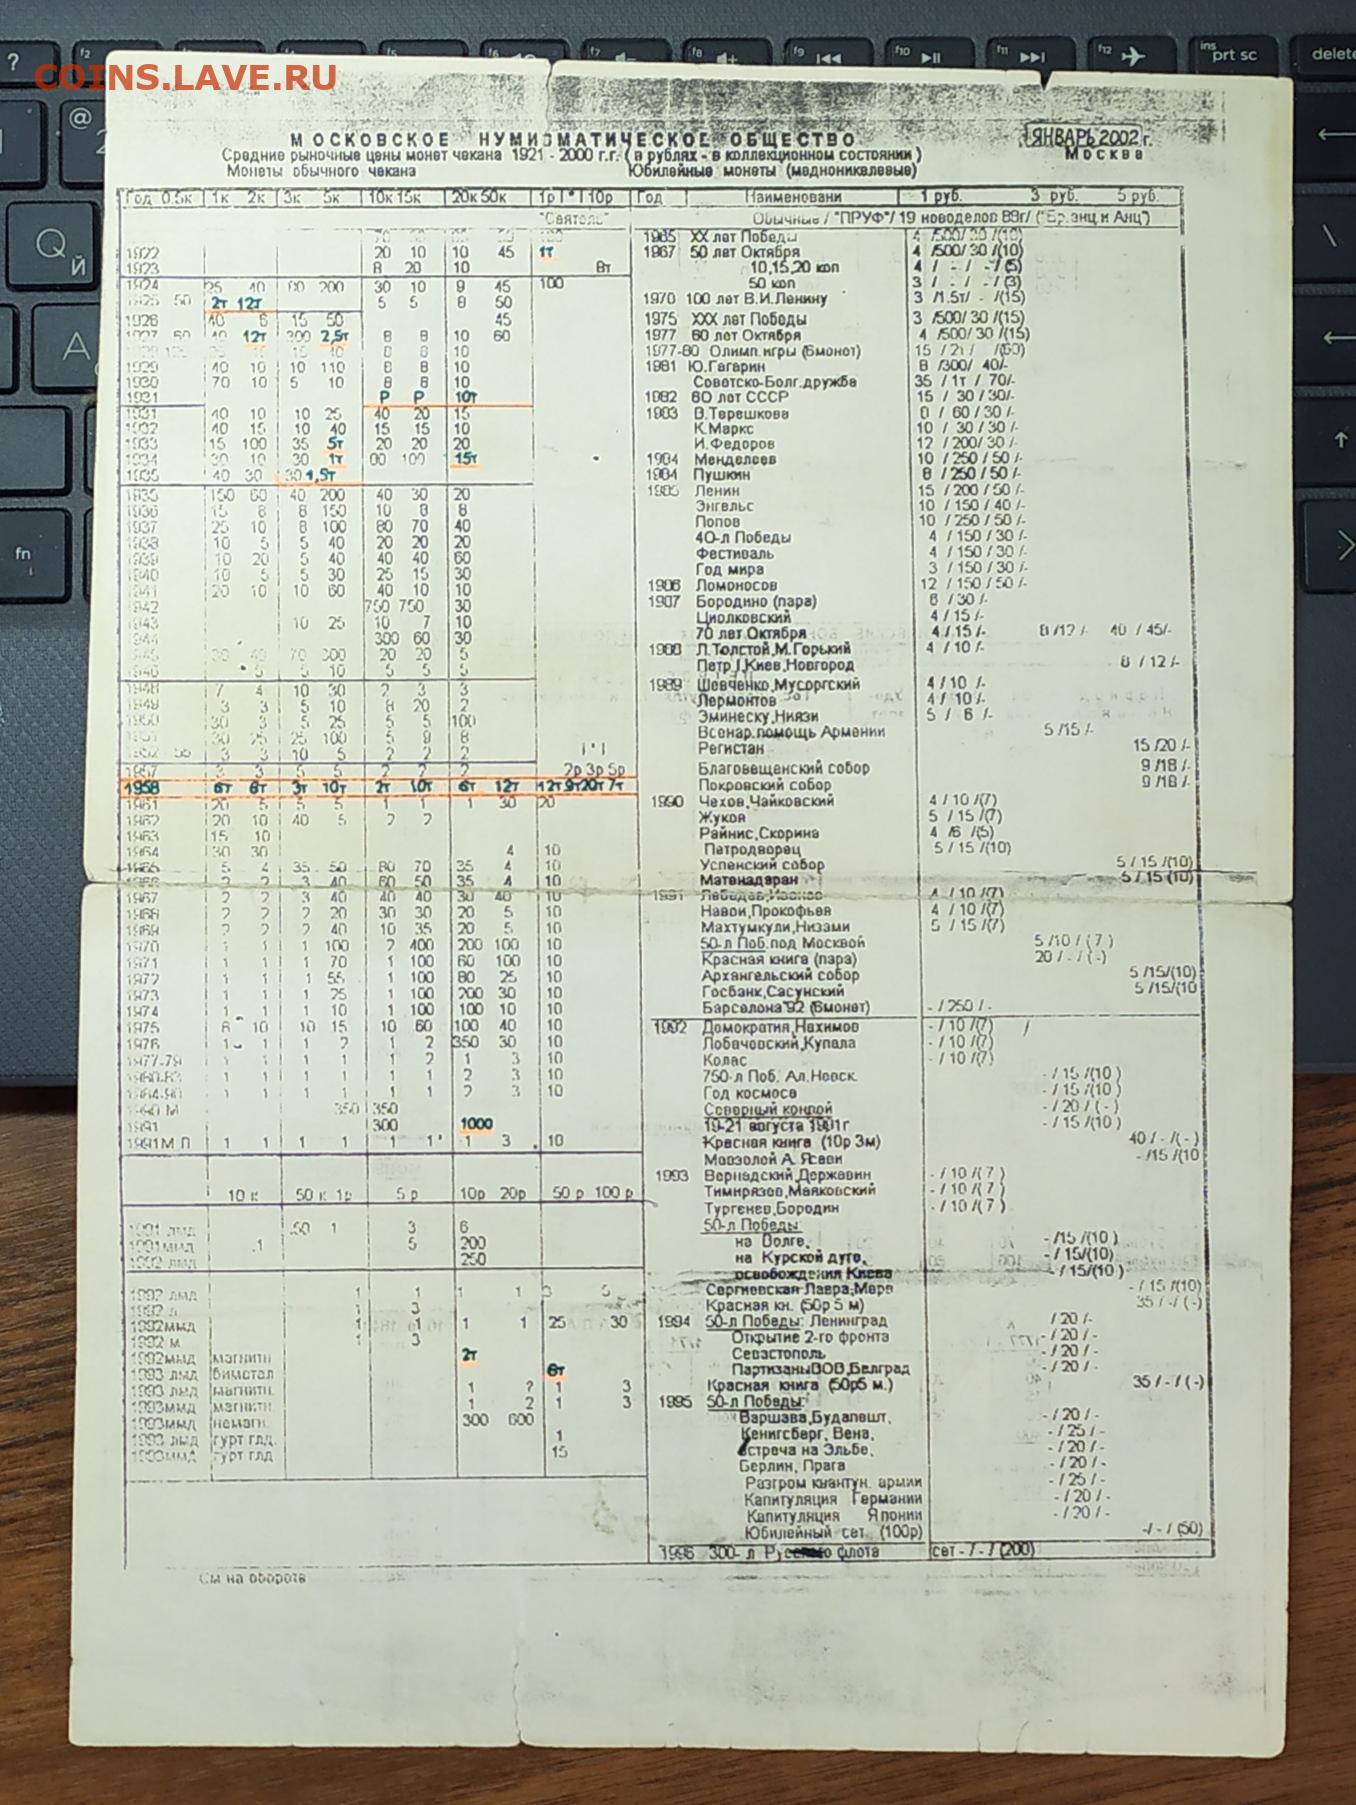 COINS.LAVE.RU
МОСКОВСКОЕ НУМИЗМАТИЧЕСКОЕ ОБЩЕСТВО
ЯНВАРЬ 2002 г.
Средние рыночные цены монет чекана 1921 - 2000 г.г. ( в рублях - в коллекционном состоянии )
Москва
Монеты обычного чекана
Юбилейные монеты (медноникелевые)
Год 0.5к 1к 2к 3к 5к 10к 15к 20к 50к 1р 10р
"Сеятель"
1922 20 10 10 45 1т
1923 8 20 10
1924 25 40 200 30 10 9 45 100
50 2т 12т 5 5 8 50
1926 40 6 15 50 45
40 12т 300 2,5т 8 8 10 60
1929 40 10 10 110 8 8 10
1930 70 10 5 10 8 8 10
1931 Р Р 10т
1931 40 10 10 25 40 20 15
1932 40 15 10 40 15 15 10
1933 15 100 35 5т 20 20 20
1934 30 10 30 1т 100 15т
1935 40 30 30 1,5т
1935 150 60 40 200 40 30 20
1936 15 8 8 150 10 8 8
1937 25 10 8 100 80 70 40
1938 10 5 5 40 20 20 20
1939 10 20 5 40 40 40 60
1940 10 5 5 30 25 15 30
1941 20 10 10 60 40 10 10
1942 750 750 30
1943 10 25 10 7 10
300 60 30
70 300 20 20 5
5 5 10 5 5 5
1948 7 4 10 30 2 3 3
1949 3 3 5 10 8 20 2
1950 30 3 5 25 5 5 100
30 25 25 100 5 9 8
3 3 10 5 2 2 2
1957 3 3 5 5 2 2 2 2р 3р 5р
1958 6т 8т 3т 10т 2т 10т 6т 12т 12т 9т 20т 7т
1961 20 5 5 5 1 1 1 30 20
1962 20 10 40 5 2 2
1963 15 10
1964 30 30 4 10
1965 5 4 35 50 80 70 35 4 10
1966 2 2 3 40 60 50 35 4 10
1967 2 2 3 40 40 40 30 40 10
1968 2 2 2 20 30 30 20 5 10
1969 2 2 2 40 10 35 20 5 10
1970 1 1 1 100 2 400 200 100 10
1971 1 1 1 70 1 100 60 100 10
1972 1 1 1 55 1 100 80 25 10
1973 1 1 1 25 1 100 200 30 10
1974 1 1 1 10 1 100 100 10 10
1975 8 10 10 15 10 60 100 40 10
1976 1 1 1 2 1 2 350 30 10
1977-79 1 1 1 1 1 2 1 3 10
1980-83 1 1 1 1 1 1 2 3 10
1984-90 1 1 1 1 1 1 2 3 10
1990 М 350 350
1991 300 1000
1991М Л 1 1 1 1 1 1 1 3 10
10 к 50 к 1р 5 р 10р 20р 50 р 100 р
1991 лмд 50 1 3 6
1991ммд .1 5 200
1992 лмд 250
1992 лмд 1 1 1 1 3 5
1992 л 1 3
1992ммд 1 1 1 1 25 30
1992 м 1 3
1992ммд магнитн 2т
1993 лмд бимстал 6т
1993 лмд магнитн. 1 2 1 3
1993ммд магнитн 1 2 1 3
1993ммд немагн. 300 600
1993 лмд гурт глд. 1
1993ммд гурт глд 15
См на обороте
Год Наименовани 1 руб. 3 руб. 5 руб.
Обычные / "ПРУФ"/ 19 новоделов 88г/ ("Бр.анц и Анц")
1965 ХХ лет Победы 4 /500/ 30 /(10)
1967 50 лет Октября 4 /500/ 30 /(10)
10,15,20 коп 4 / - / - / (5)
50 коп 3 / - / - / (3)
1970 100 лет В.И.Ленину 3 /1.5т/ - /(15)
1975 ХХХ лет Победы 3 /500/ 30 /(15)
1977 60 лет Октября 4 /500/ 30 /(15)
1977-80 Олимп.игры (6монет)
1981 Ю.Гагарин 8 /300/ 40/-
Советско-Болг.дружба 35 / 1т / 70/-
1982 60 лет СССР 15 / 30 /30/-
1983 В.Терешкова / 60 / 30 /-
К.Маркс 10 / 30 / 30 /-
И.Федоров 12 / 200/ 30 /-
1984 Менделеев 10 / 250 / 50 /-
1984 Пушкин 8 / 250 / 50 /-
1985 Ленин 15 / 200 / 50 /-
Энгельс 10 / 150 / 40 /-
Попов 10 / 250 / 50 /-
40-л Победы 4 / 150 / 30 /-
Фестиваль 4 / 150 / 30 /-
Год мира 3 / 150 / 30 /-
1986 Ломоносов 12 / 150 / 50 /-
1987 Бородино (пара) 6 / 30 /-
Циолковский 4 / 15 /-
70 лет Октября 4 / 15 /- 8 /12 /- 40 / 45/-
1988 Л.Толстой,М.Горький 4 / 10 /-
Петр I,Киев,Новгород 8 / 12 /-
1989 Шевченко,Мусоргский 4 / 10 /-
Лермонтов 4 / 10 /-
Эминеску,Ниязи 5 / 6 /-
Всенар.помощь Армении 5 /15 /-
Регистан 15 /20 /-
Благовещенский собор 9 /18 /-
Покровский собор 9 /18 /-
1990 Чехов,Чайковский 4 / 10 /(7)
Жуков 5 / 15 /(7)
Райнис,Скорина 4 /6 /(5)
Петродворец 5 / 15 /(10)
Успенский собор 5 / 15 /(10)
Матенадаран 5 / 15 (10)
1991 Лебедев,Иванов 4 / 10 /(7)
Навои,Прокофьев 4 / 10 /(7)
Махтумкули,Низами 5 / 15 /(7)
50-л Поб.под Москвой 5 /10 / ( 7 )
Красная книга (пара) 20 / - / ( -)
Архангельский собор 5 /15/(10)
Госбанк,Сасунский 5 /15/(10
Барселона'92 (6монет) - / 250 / -
1992 Демократия,Нахимов - / 10 /(7) /
Лобачевский,Купала - / 10 /(7)
Колас - / 10 /(7)
750-л Поб. Ал.Невск. - / 15 /(10 )
Год космоса - / 15 /(10 )
Северный конвой - / 20 / ( - )
19-21 августа 1991г - / 15 /(10 )
Красная книга (10р 3м) 40 / - /( - )
Мавзолей А. Ясави - /15 /(10
1993 Вернадский,Державин - / 10 /( 7 )
Тимирязев,Маяковский - / 10 /( 7 )
Тургенев,Бородин - / 10 /( 7 )
50-л Победы:
на Волге, - /15 /(10 )
на Курской дуге, - / 15/(10)
освобождения Киева - / 15/(10 )
Сергиевская Лавра,Мерв - / 15 /(10)
Красная кн. (50р 5 м) 35 / - / ( - )
1994 50-л Победы: Ленинград - / 20 /-
Открытие 2-го фронта - / 20 / -
Севастополь - / 20 / -
ПартизаныВОВ,Белград - / 20 / -
Красная книга (50р5 м.) 35 / - / ( - )
1995 50-л Победы:
Варшава,Будапешт, - / 20 / -
Кенигсберг, Вена, - / 25 / -
встреча на Эльбе, - / 20 / -
Берлин, Прага - / 20 / -
Разгром квантун. армии - / 25 / -
Капитуляция Германии - / 20 / -
Капитуляция Японии - / 20 / -
Юбилейный сет (100р) -/ - / (50)
1996 300- л Русского флота сет - / - / (200)